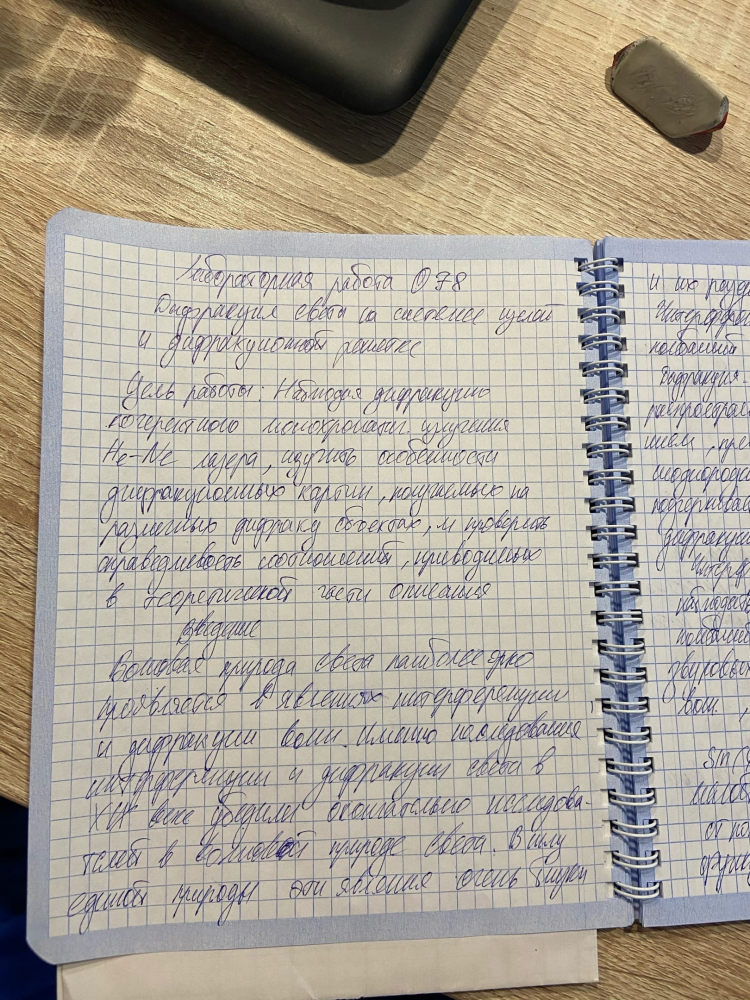 Лабораторная работа О78
Дифракция света на системе щелей
и дифракционной решетке
Цель работы: Наблюдая дифракцию
когерентного монохроматич. излучения
He-Ne лазера, изучить особенности
дифракционных картин, получаемых на
различных дифракц объектах, и проверить
справедливость соотношений, приводимых
в теоретической части описания
Введение
Волновая природа света наиболее ярко
проявляется в явлениях интерференции,
и дифракции волн. Именно исследования
интерференции и дифракции света в
XIX веке убедили окончательно исследова-
телей в волновой природе света. В силу
единой природы эти явления очень близки
и их
Интерфер
колебаний
Дифракция
распростран
нием,
неоднород
подчеркивае
дифракци
Интерф
наблюдать
колебани
звуковых
волн.
sin(